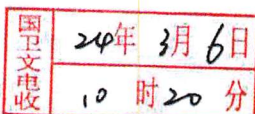 国卫文电收
24年3月6日
10时20分